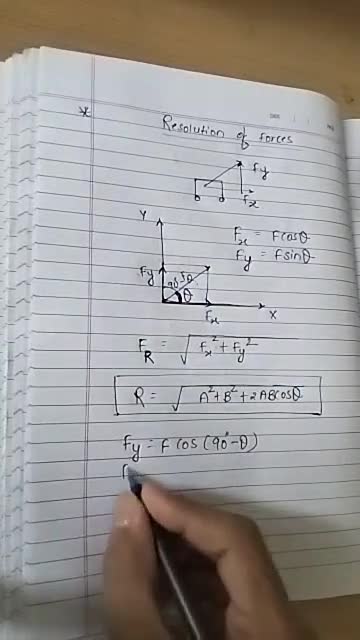 *
Resolution of forces
Fy
Fx
Y
Fx = Fcosθ
Fy = Fsinθ
Fy
90
θ
Fx
X
F_R = √Fx² + Fy²
R = √A² + B² + 2ABcosθ
Fy = F cos (90° - θ)